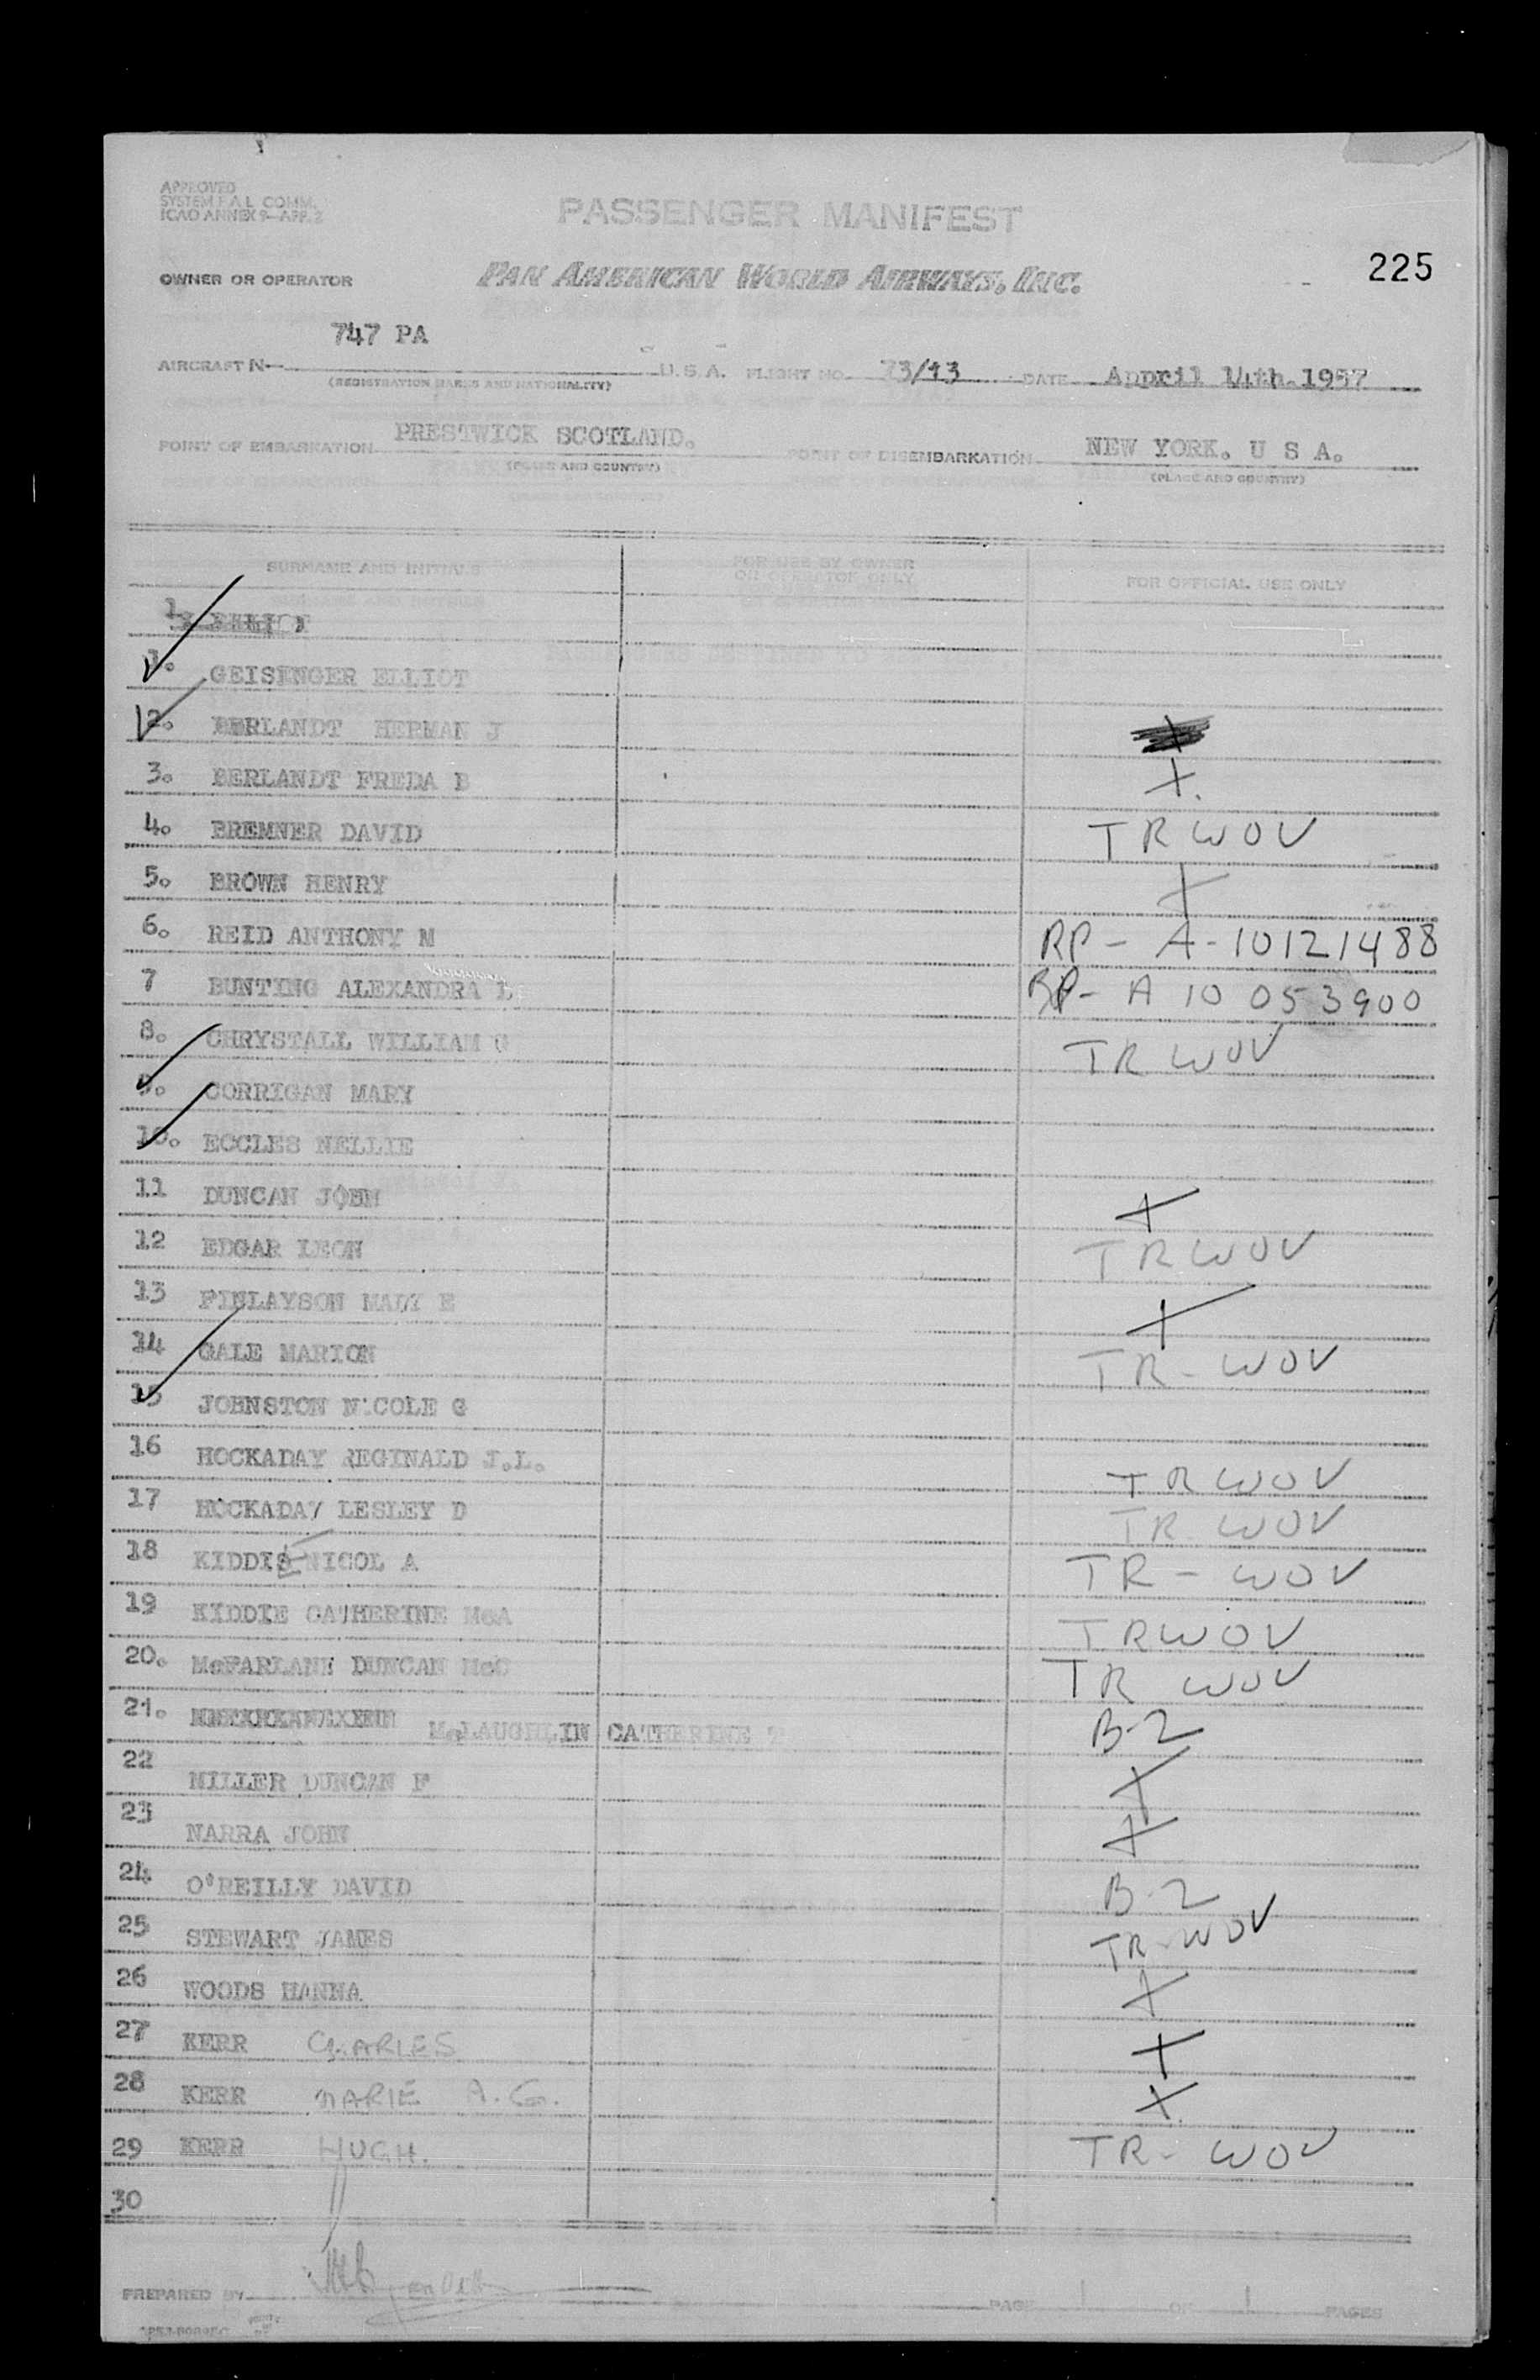 APPROVED
SYSTEM F.A.L COMM.
ICAO ANNEX 9—APP. 2
PASSENGER MANIFEST
225
OWNER OR OPERATOR PAN AMERICAN WORLD AIRWAYS, INC.
747 PA
AIRCRAFT N— U.S.A. FLIGHT NO. 73/13 DATE Appril 14th.1957
(REGISTRATION MARKS AND NATIONALITY)
POINT OF EMBARKATION PRESTWICK SCOTLAND. POINT OF DISEMBARKATION NEW YORK. U S A.
(PLACE AND COUNTRY) (PLACE AND COUNTRY)
SURNAME AND INITIALS FOR USE BY OWNER OR OPERATOR ONLY FOR OFFICIAL USE ONLY
1
1. GEISENGER ELLIOT
2. BERLANDT HERMAN J
3. BERLANDT FREDA B X.
4. BREMNER DAVID TRWOV
5. BROWN HENRY X
6. REID ANTHONY M RP- A-10121488
7 BUNTING ALEXANDRA L RP- A 10 053900
8. CHRYSTALL WILLIAM G TR WOV
9. CORRIGAN MARY
10. ECCLES NELLIE
11 DUNCAN JOHN X
12 EDGAR LEON TRWOV
13 FINLAYSON MARY E X
14 GALE MARION TR-WOV
15 JOHNSTON NICOLE G
16 HOCKADAY REGINALD J.L. TRWOV
17 HOCKADAY LESLEY D TR WOV
18 KIDDIE NICOL A TR-WOV
19 KIDDIE CATHERINE McA TRWOV
20. McFARLANE DUNCAN McC TR WOV
21. McLAUGHLIN CATHERINE B-2
22 MILLER DUNCAN F X
23 NARRA JOHN X
24 O'REILLY DAVID B-2
25 STEWART JAMES TR-WOV
26 WOODS HANNA X
27 KERR CHARLES X
28 KERR MARIE A.G. X.
29 KERR HUGH. TR-WOV
30
PREPARED BY PAGE 1 OF 1 PAGES